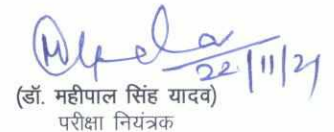 22/11/21
(डॉ. महीपाल सिंह यादव)
परीक्षा नियंत्रक